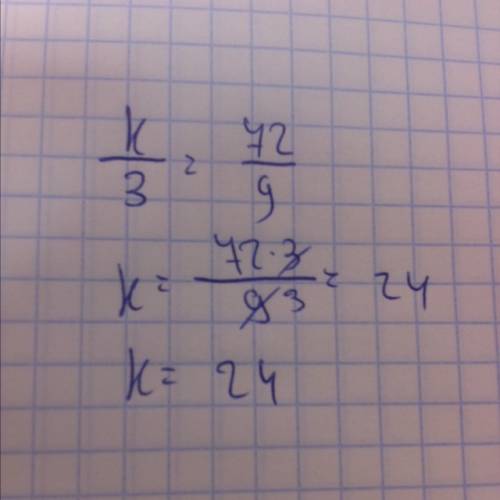 k/3 = 72/9
k = 72·3/9 3 = 24
k = 24